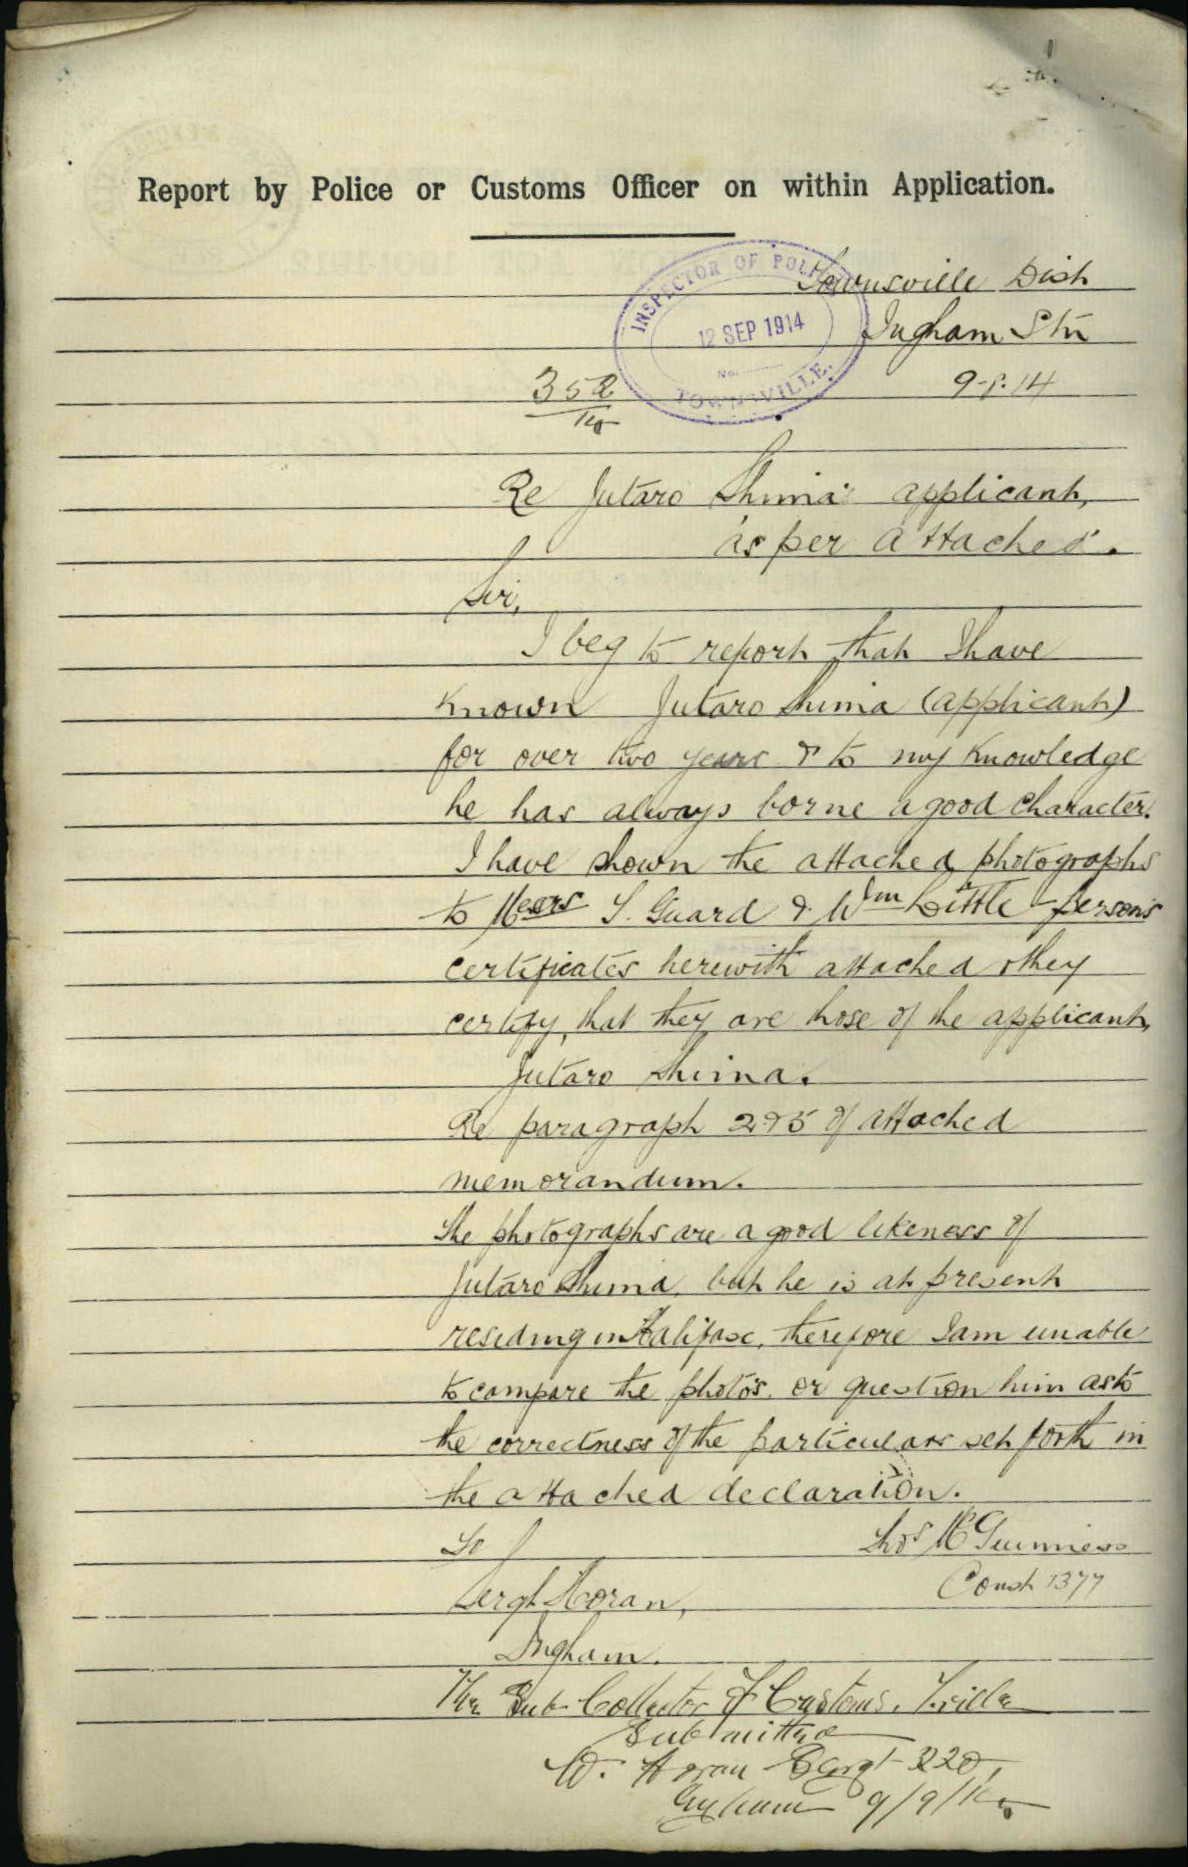 Report by Police or Customs Officer on within Application.
INSPECTOR OF POLICE
12 SEP 1914
No.
TOWNSVILLE.
Townsville Dist
Ingham Stn
9-9-14
352
14
Re Jutaro Shima applicant,
as per attached.
Sir,
I beg to report that I have
known Jutaro Shima (applicant)
for over two years & to my knowledge
he has always borne a good character.
I have shown the attached photographs
to Messrs S. Guard & Wm Little persons
certificates herewith attached & they
certify, that they are those of the applicant,
Jutaro Shima.
Re paragraph 2 & 5 of attached
memorandum.
The photographs are a good likeness of
Jutaro Shima, but he is at present
residing in Halifax, therefore I am unable
to compare the photo's, or question him as to
the correctness of the particulars set forth in
the attached declaration.
To
Thos McGuinness
Const 1377
Sergt Horan,
Ingham.
The Sub Collector of Customs. T.ville
Submitted
W. Horan Sergt 220,
Ingham 9/9/14